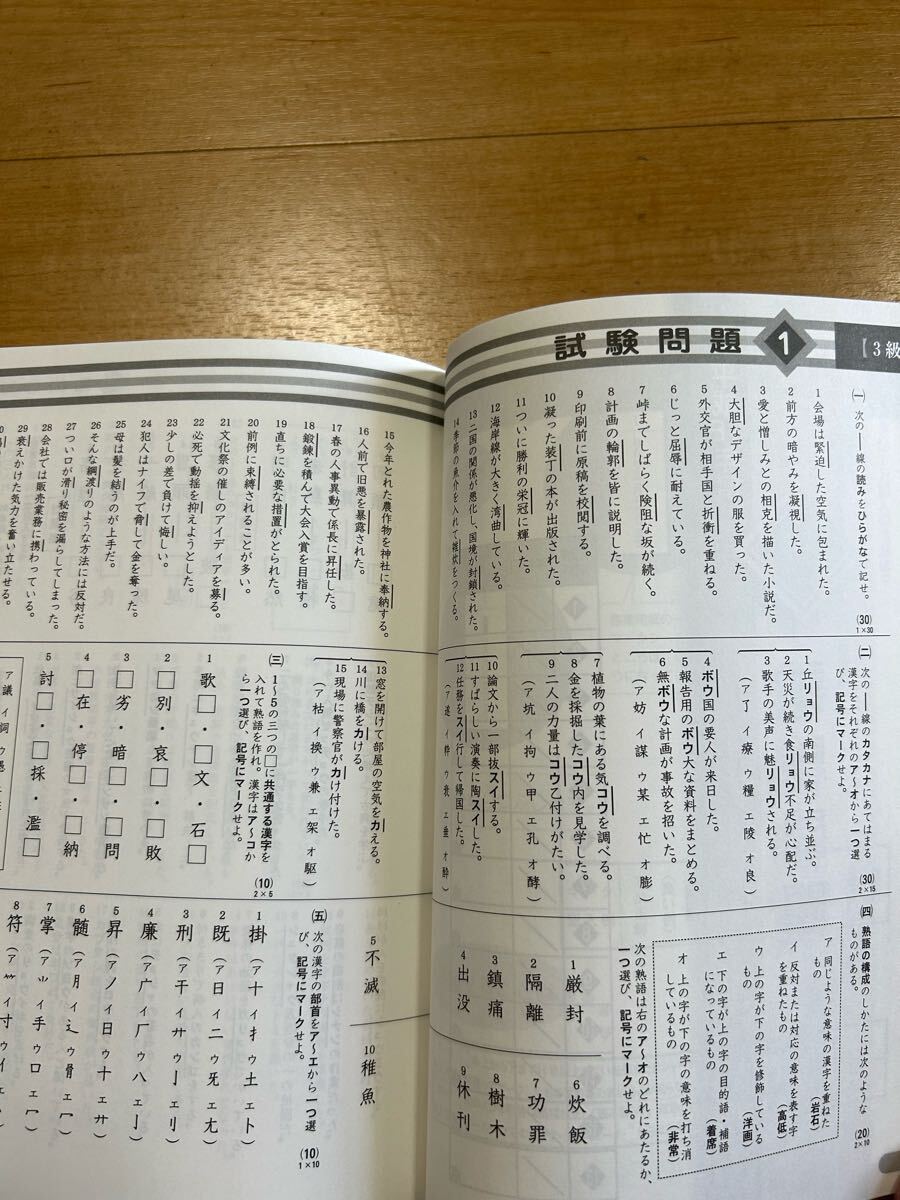 【3級
試験問題 1
(一) 次の──線の読みをひらがなで記せ。 (30) 1×30
1 会場は緊迫した空気に包まれた。
2 前方の暗やみを凝視した。
3 愛と憎しみとの相克を描いた小説だ。
4 大胆なデザインの服を買った。
5 外交官が相手国と折衝を重ねる。
6 じっと屈辱に耐えている。
7 峠までしばらく険阻な坂が続く。
8 計画の輪郭を皆に説明した。
9 印刷前に原稿を校閲する。
10 凝った装丁の本が出版された。
11 ついに勝利の栄冠に輝いた。
12 海岸線が大きく湾曲している。
13 二国の関係が悪化し、国境が封鎖された。
14 季節の魚介を入れて雑炊をつくる。
15 今年とれた農作物を神社に奉納する。
16 人前で旧悪を暴露された。
17 春の人事異動で係長に昇任した。
18 鍛錬を積んで大会入賞を目指す。
19 直ちに必要な措置がとられた。
20 前例に束縛されることが多い。
21 文化祭の催しのアイディアを募る。
22 必死で動揺を抑えようとした。
23 少しの差で負けて悔しい。
24 犯人はナイフで脅して金を奪った。
25 母は髪を結うのが上手だ。
26 そんな綱渡りのような方法には反対だ。
27 つい口が滑り秘密を漏らしてしまった。
28 会社では販売業務に携わっている。
29 衰えかけた気力を奮い立たせる。
(二) 次の──線のカタカナにあてはまる
漢字をそれぞれのア〜オから一つ選
び、記号にマークせよ。 (30) 2×15
1 丘リョウの南側に家が立ち並ぶ。
2 天災が続き食リョウ不足が心配だ。
3 歌手の美声に魅リョウされる。
(ア 了 イ 療 ウ 糧 エ 陵 オ 良)
4 ボウ国の要人が来日した。
5 報告用のボウ大な資料をまとめる。
6 無ボウな計画が事故を招いた。
(ア 妨 イ 謀 ウ 某 エ 忙 オ 膨)
7 植物の葉にある気コウを調べる。
8 金を採掘したコウ内を見学した。
9 二人の力量はコウ乙付けがたい。
(ア 坑 イ 拘 ウ 甲 エ 孔 オ 酵)
10 論文から一部抜スイする。
11 すばらしい演奏に陶スイした。
12 任務をスイ行して帰国した。
(ア 遂 イ 粋 ウ 衰 エ 垂 オ 酔)
13 窓を開けて部屋の空気をカえる。
14 川に橋をカける。
15 現場に警察官がカけ付けた。
(ア 枯 イ 換 ウ 兼 エ 架 オ 駆)
(三) 1〜5の三つの□に共通する漢字を
入れて熟語を作れ。漢字はア〜コか
ら一つ選び、記号にマークせよ。 (10) 2×5
1 歌□・□文・石□
2 □別・哀□・□敗
3 □劣・暗□・□問
4 □在・停□・□納
5 討□・□採・濫□
ア 議 イ 詞 ウ 愚
(四) 熟語の構成のしかたには次のような
ものがある。 (20) 2×10
ア 同じような意味の漢字を重ねた
もの (岩石)
イ 反対または対応の意味を表す字
を重ねたもの (高低)
ウ 上の字が下の字を修飾している
もの (洋画)
エ 下の字が上の字の目的語・補語
になっているもの (着席)
オ 上の字が下の字の意味を打ち消
しているもの (非常)
次の熟語は右のア〜オのどれにあたるか、
一つ選び、記号にマークせよ。
1 厳封
2 隔離
3 鎮痛
4 出没
5 不滅
6 炊飯
7 功罪
8 樹木
9 休刊
10 稚魚
(五) 次の漢字の部首をア〜エから一つ選
び、記号にマークせよ。 (10) 1×10
1 掛 (ア 十 イ 扌 ウ 土 エ 卜
2 既 (ア 日 イ 二 ウ 旡 エ 尢
3 刑 (ア 干 イ 廾 ウ 亅 エ 刂
4 廉 (ア 广 イ 厂 ウ 八 エ 亅
5 昇 (ア ノ イ 日 ウ 十 エ 廾
6 髄 (ア 月 イ 辶 ウ 骨 エ 冖
7 掌 (ア ⺌ イ 手 ウ 口 エ 冖
8 符 (ア ⺮ イ 寸 ウ イ エ